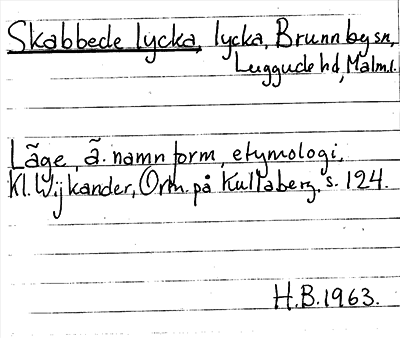 Skabbede lycka, lycka, Brunnby sn,
Luggude hd, Malm.l.
Läge, ä. namnform, etymologi,
Kl. Wijkander, Orm. på Kullaberg, s. 124.
H.B. 1963.